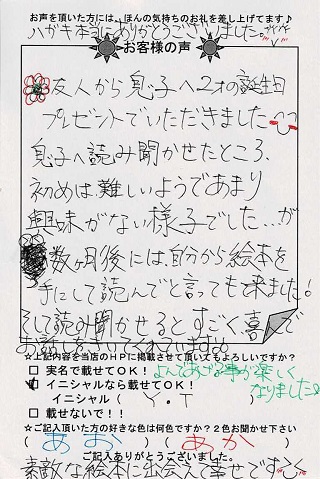 お声を頂いた方には、ほんの気持ちのお礼を差し上げてます♪
ハガキ本当にありがとうございました。
お客様の声
友人から息子へ2才の誕生日
プレゼントでいただきました
息子へ読み聞かせたところ、
初めは難しいようであまり
興味がない様子でした…が
数ヶ月後には自分から絵本を
手にして読んでと言っても来ました!
そして読み聞かせるとすごく喜んで
お話しをきいてくれています♪
☆上記内容を当店のHPに掲載させて頂いてもよろしいですか?
□ 実名で載せてOK!
よんであげる事が楽しく
なりました♪
□ イニシャルなら載せてOK!
イニシャル( Y・T )
□ 載せないで!!
☆ご記入頂いた方の好きな色は何色ですか?2色お聞かせ下さい
( あお )( あか )
ご記入ありがとうございました。
素敵な絵本に出会えて幸せです